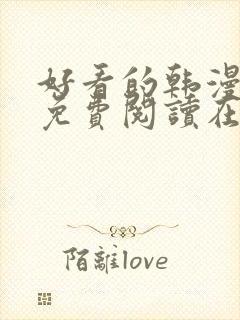 好看的韩漫
免費閱讀在
陌離love